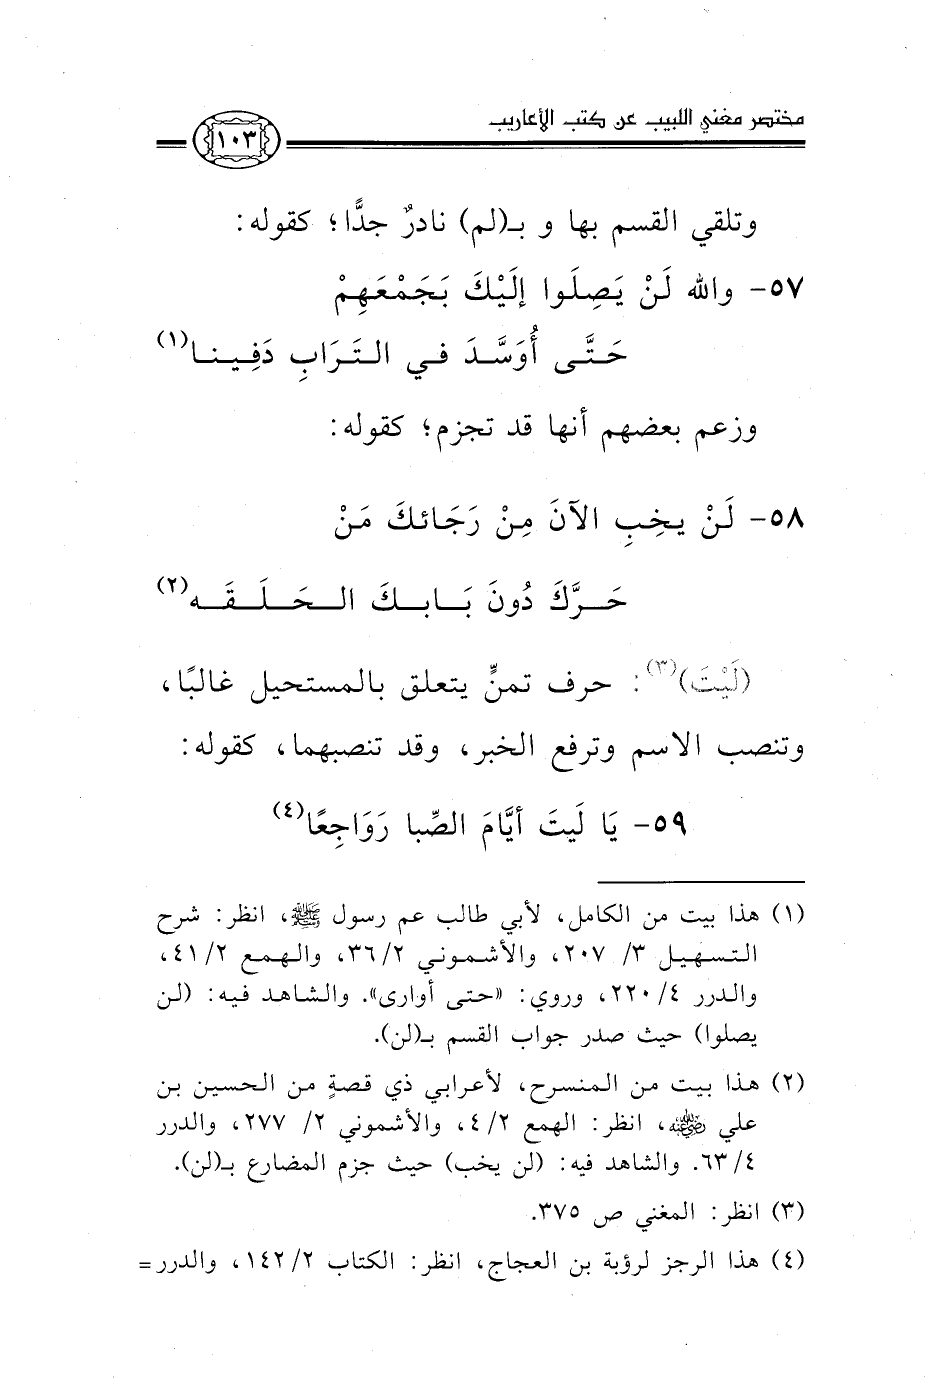 مختصر مغني اللبيب عن كتب الأعاريب
١٠٣
وتلقي القسم بها و بـ(لم) نادرٌ جدًّا؛ كقوله:
٥٧- والله لَنْ يَصِلَوا إلَيْكَ بَجَمْعَهِمْ
حَتَّى أُوَسَّدَ في التَرَابِ دَفِينا(١)
وزعم بعضهم أنها قد تجزم؛ كقوله:
٥٨- لَنْ يخِبِ الآنَ مِنْ رَجَائكَ مَنْ
حَرَّكَ دُونَ بَابكَ الحَلَقَه(٢)
(لَيْتَ)(٣): حرف تمنٍّ يتعلق بالمستحيل غالبًا،
وتنصب الاسم وترفع الخبر، وقد تنصبهما، كقوله:
٥٩- يَا لَيتَ أيَّامَ الصِّبا رَوَاجِعًا(٤)
(١) هذا بيت من الكامل، لأبي طالب عم رسول ﷺ، انظر: شرح
التسهيل ٣/ ٢٠٧، والأشموني ٣٦/٢، والهمع ٤١/٢،
والدرر ٢٢٠/٤، وروي: «حتى أوارى». والشاهد فيه: (لن
يصلوا) حيث صدر جواب القسم بـ(لن).
(٢) هذا بيت من المنسرح، لأعرابي ذي قصةٍ من الحسين بن
علي رضي الله عنه، انظر: الهمع ٤/٢، والأشموني ٢/ ٢٧٧، والدرر
٦٣/٤. والشاهد فيه: (لن يخب) حيث جزم المضارع بـ(لن).
(٣) انظر: المغني ص ٣٧٥.
(٤) هذا الرجز لرؤبة بن العجاج، انظر: الكتاب ١٤٢/٢، والدرر=